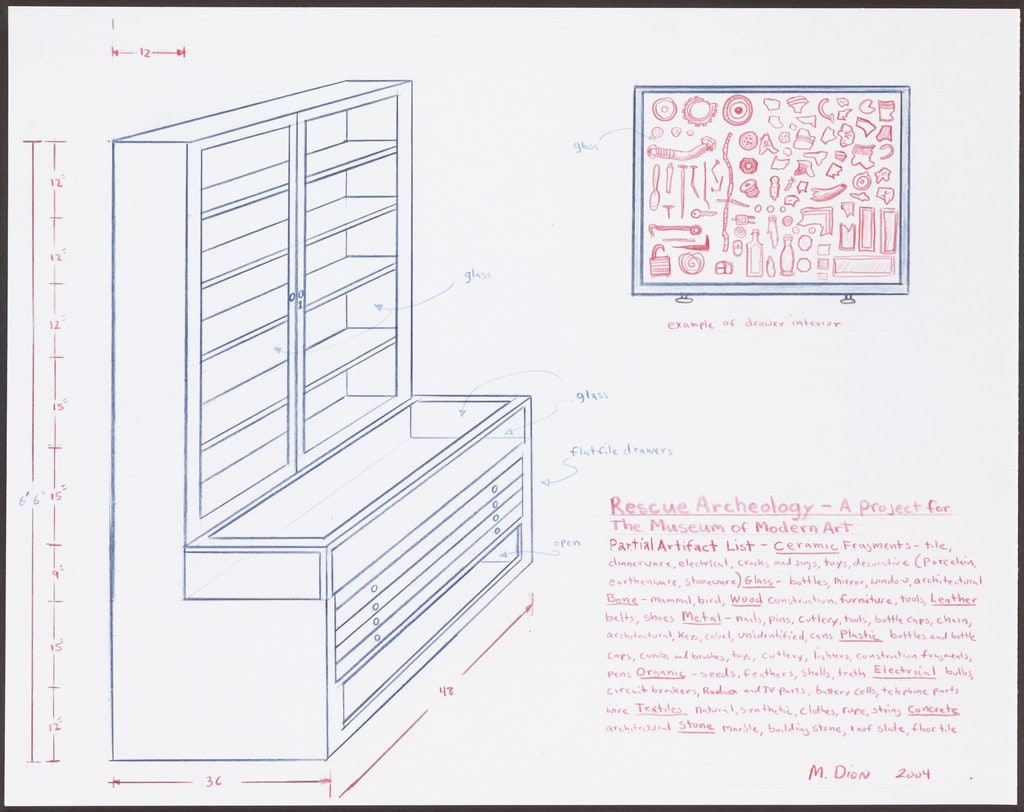 12
12"
12"
12"
15"
15"
9"
15"
12"
6' 6"
36
48
glass
glass
flatfile drawers
open
glass
example of drawer interior
Rescue Archeology – A project for
The Museum of Modern Art
Partial Artifact List – Ceramic Fragments – tile,
dinnerware, electrical, crocks and jugs, toys, decorative (porcelain,
earthenware, stoneware) Glass – bottles, mirror, window, architectural
Bone – mammal, bird, Wood construction, furniture, tools, Leather
belts, shoes Metal – nails, pins, cutlery, tools, bottle caps, chain,
architectural, Key, cabel, unidentified, cans Plastic bottles and bottle
caps, combs and brushes, toys, cutlery, lighters, construction fragments,
pens Organic – seeds, feathers, shells, teeth Electrical bulbs,
circuit breakers, Radios and TV parts, battery cells, telephone parts
wire Textiles natural, synthetic, clothes, rope, string Concrete
architectural Stone marble, building stone, roof slate, floor tile
M. Dion 2004